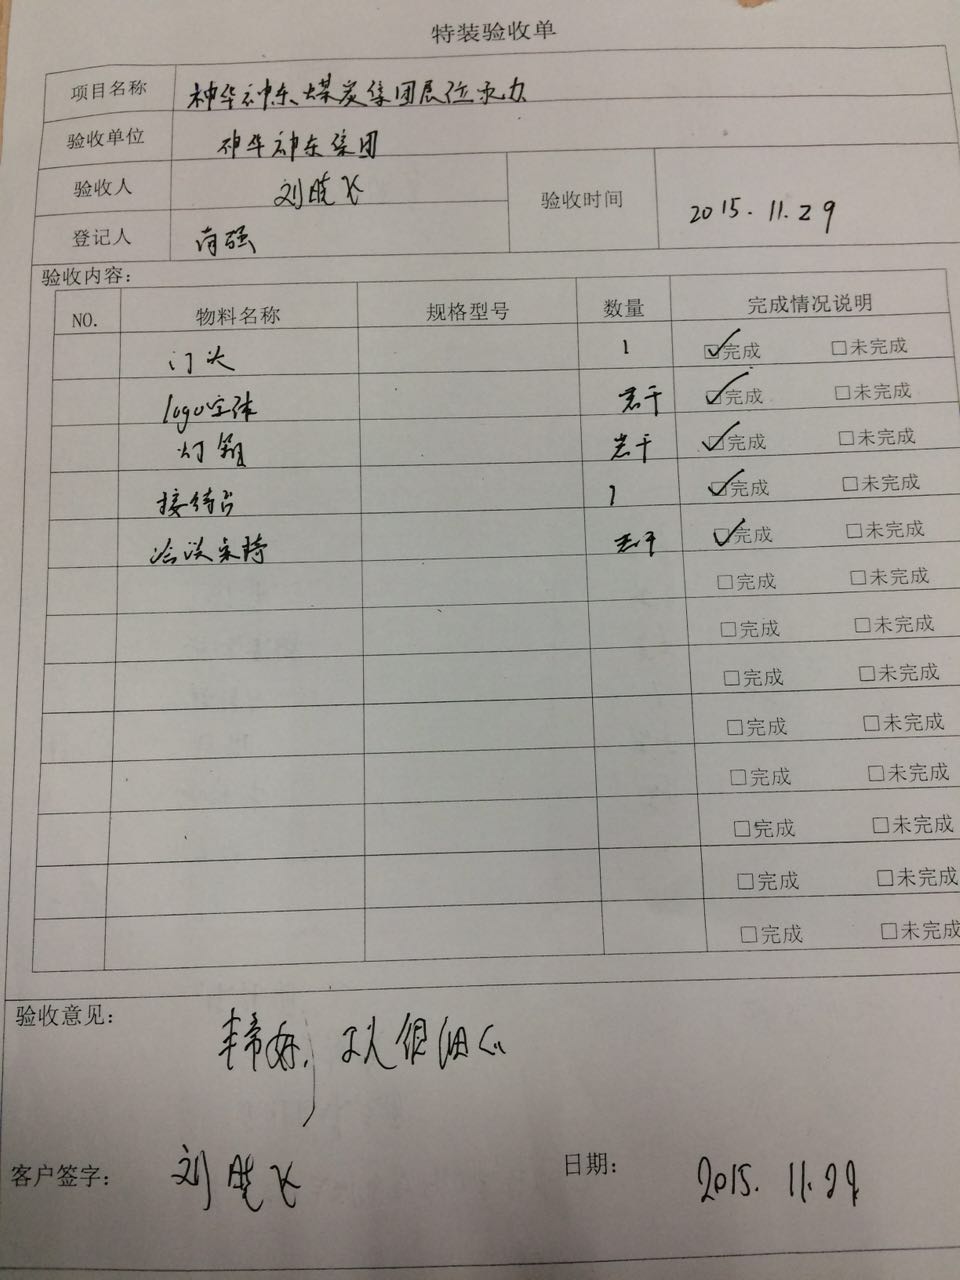 特装验收单
项目名称 神华神东煤炭集团展位永力
验收单位 神华神东集团
验收人 刘晓飞 验收时间 2015.11.29
登记人 强
验收内容:
NO. 物料名称 规格型号 数量 完成情况说明
门头 1 ☑完成 □未完成
logo字体 若干 ☑完成 □未完成
灯箱 若干 ☑完成 □未完成
接待台 1 ☑完成 □未完成
洽谈桌椅 若干 ☑完成 □未完成
□完成 □未完成
□完成 □未完成
□完成 □未完成
□完成 □未完成
□完成 □未完成
□完成 □未完成
□完成 □未完成
□完成 □未完成
验收意见:
非常好, 工人很细心
客户签字: 刘晓飞 日期: 2015.11.29